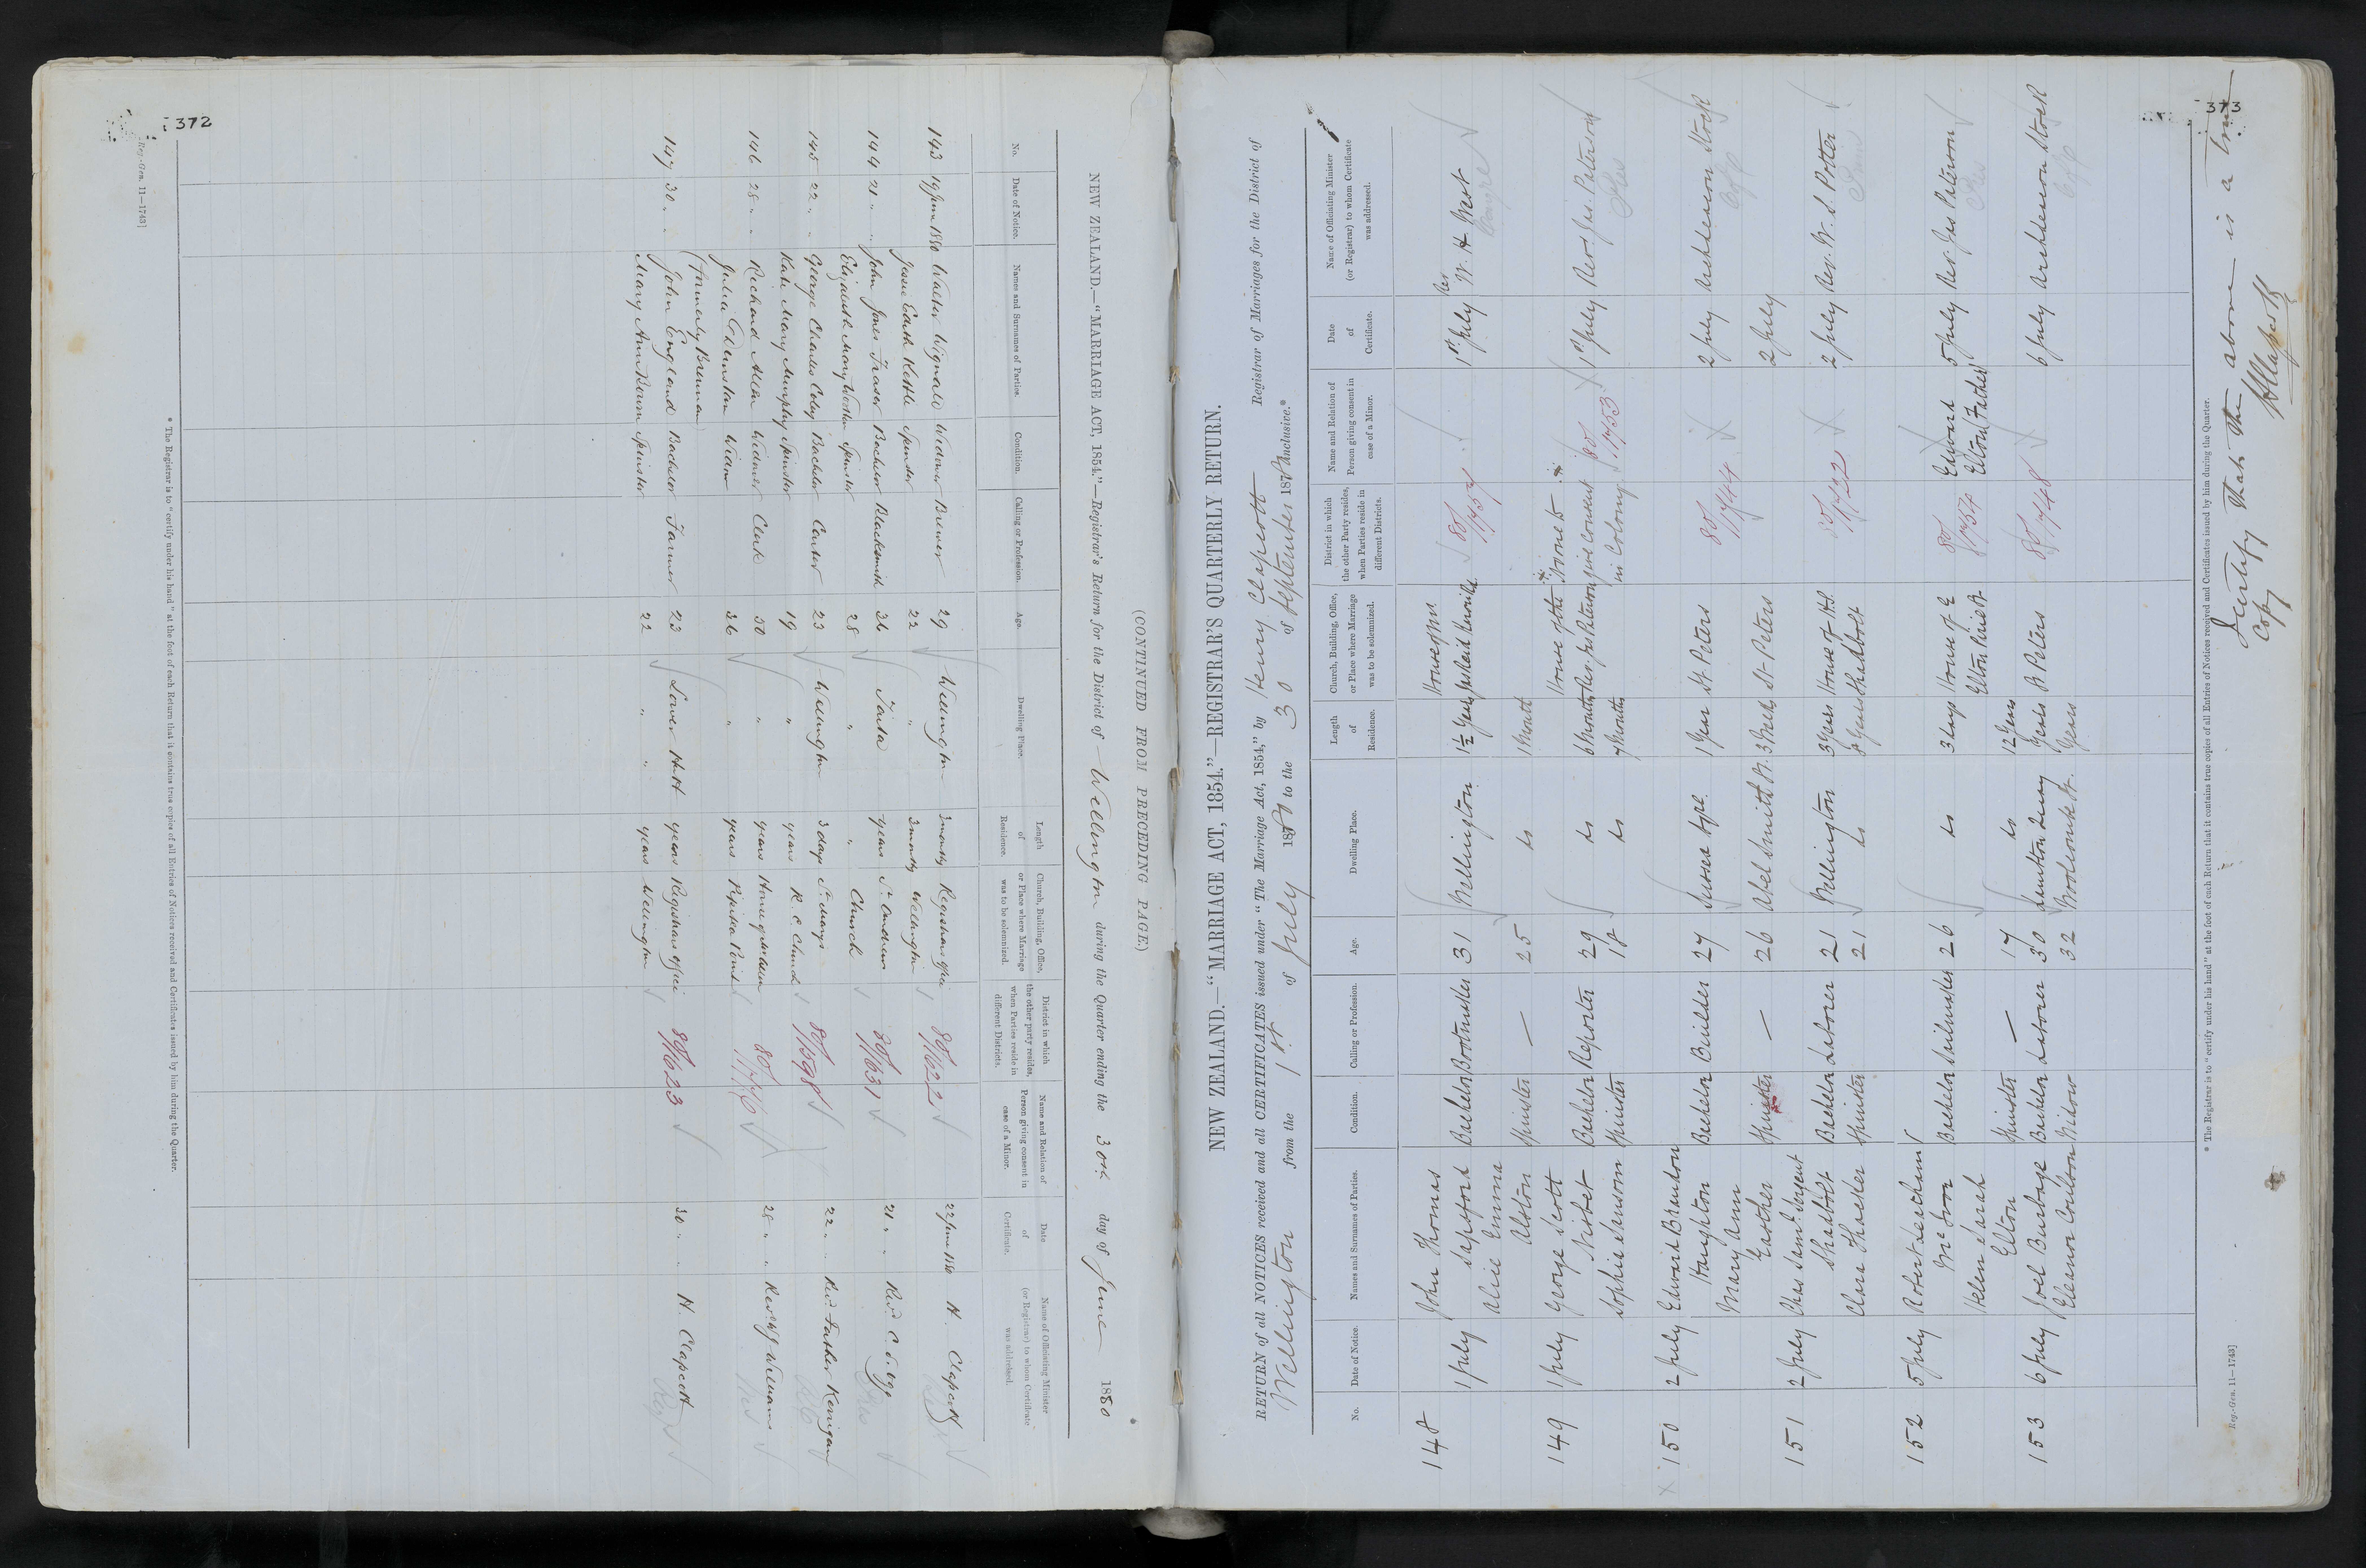 372
(CONTINUED FROM PRECEDING PAGE.)
NEW ZEALAND.—"MARRIAGE ACT, 1854."—Registrar's Return for the District of Wellington during the Quarter ending the 30th day of June 1880
No. Date of Notice. Names and Surnames of Parties. Condition. Calling or Profession. Age. Dwelling Place. Length of Residence. Church, Building, Office, or Place where Marriage was to be solemnized. District in which the other party resides, when Parties reside in different Districts. Name and Relation of Person giving consent in case of a Minor. Date of Certificate. Name of Officiating Minister (or Registrar) to whom Certificate was addressed.
143 19 June 1880 Walter Wignall Widower Brewer 29 Wellington 3 months Registrars office 80/1622 22 June 1880 H. Clapcott
Jessie Edith Kettle Spinster 22 " 3 months Wellington
144 21 " " John Jones Fraser Bachelor Blacksmith 36 Taita years St Andrews 80/1631 21 " " Revd C. S. Ogg
Elizabeth Mary Spinster 28 " " Church
145 22 " " George Charles Bachelor 23 Wellington 3 days St Marys 80/1598 22 " " Revd Father Kerrigan
Kate Mary Murphy Spinster 19 " years R. C. Church
146 28 " " Richard Allen Widower Clerk 50 " years House of 80/1716 28 " " Revd Williams
Julia Widow 36 " years Pipitea Point
(formerly Brennan)
147 30 " " John England Bachelor Farmer 23 Lower Hutt years Registrars office 80/1623 30 " " H. Clapcott
Mary Ann Spinster 22 " " years Wellington
* The Registrar is to "certify under his hand" at the foot of each Return that it contains true copies of all Entries of Notices received and Certificates issued by him during the Quarter.
Reg.-Gen. 11—1743]
373
NEW ZEALAND.—"MARRIAGE ACT, 1854."—REGISTRAR'S QUARTERLY RETURN.
RETURN of all NOTICES received and all CERTIFICATES issued under "The Marriage Act, 1854," by Henry Clapcott Registrar of Marriages for the District of
Wellington from the 1st of July 1880 to the 30 of September 1880 inclusive.*
No. Date of Notice. Names and Surnames of Parties. Condition. Calling or Profession. Age. Dwelling Place. Length of Residence. Church, Building, Office, or Place where Marriage was to be solemnized. District in which the other Party resides, when Parties reside in different Districts. Name and Relation of Person giving consent in case of a Minor. Date of Certificate. Name of Officiating Minister (or Registrar) to whom Certificate was addressed.
148 1 July John Thomas House of Mr Rev
Sapsford Bachelor Bootmaker 31 Wellington 1½ Years 80/1757 1st July W. H. West
Alice Emma Congre
Alston Spinster — 25 do 1 Month
149 1 July George Scott House of the None to
Nisbet Bachelor Reporter 29 do 6 Months Rev. Jas Paterson give consent 80/1753 1st July Rev Jas. Paterson
Sophia Anson Spinster 18 do 7 Months in Colony Pres
150 2 July Edward Brandon
Haughton Bachelor Builder 27 Sussex Sqre 1 Year St. Peters 80/1744 2 July Archdeacon Stock
Mary Ann
Easther Spinster — 26 Abel Smith St. 3 Weeks St Peters 2 July
151 2 July Chas Saml Sergent
Shadbolt Bachelor Laborer 21 Wellington 3 Years House of H.S. 80/1722 2 July Rev. W. S. Potter
Clara Thacker Spinster 21 do 8 Years Shadbolt
152 5 July Robert Leecham
Bachelor Sailmaker 26 do 3 Days House of E 80/1754 Edward 5 July Rev. Jas Paterson
Helen Sarah Elton Elton Father Pres
Elton Spinster — 17 do 12 Years
153 6 July Joel Burbage Bachelor Laborer 30 Lambton Quay Years St Peters 80/1748 6 July Archdeacon Stock
Eleanor Coulson Widow 32 Woolcombe St. Years
* The Registrar is to "certify under his hand" at the foot of each Return that it contains true copies of all Entries of Notices received and Certificates issued by him during the Quarter.
I certify that the above is a true
copy
H Clapcott
Reg.-Gen. 11—1743]